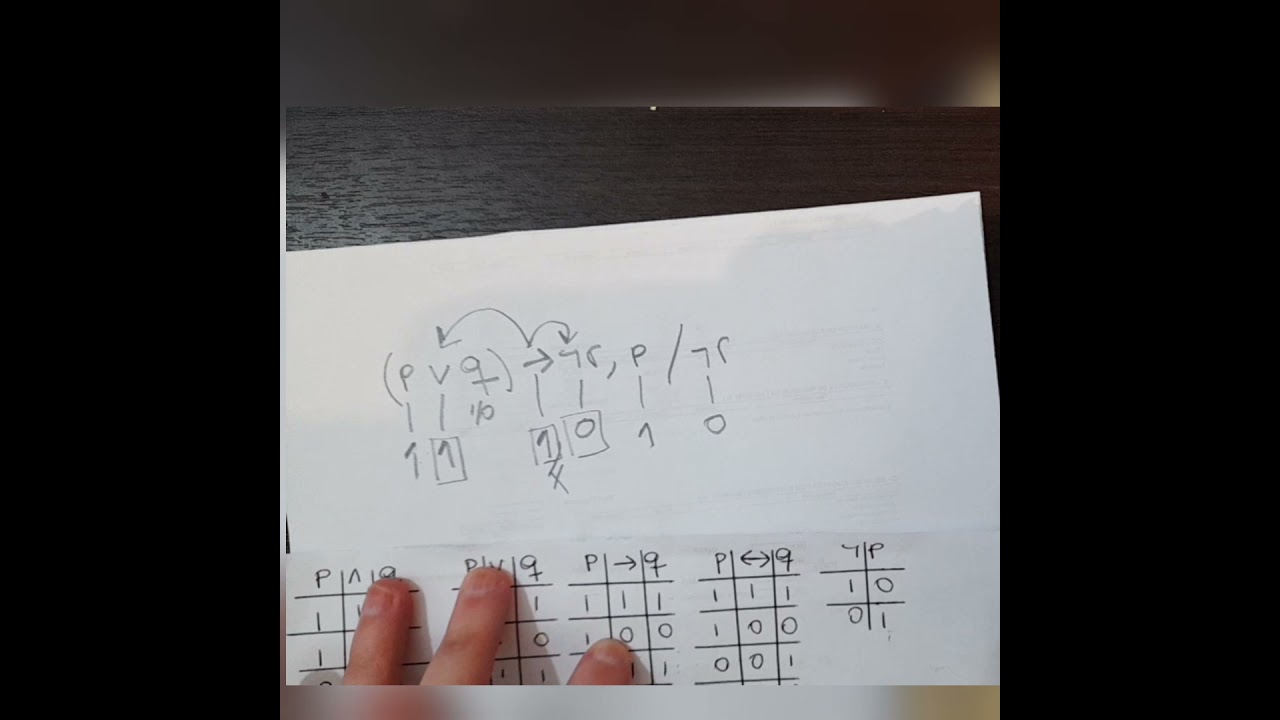 (p ∨ q) → ¬r, p / ¬r
1 1 1/0 1 0 1 0
X
p ∧ q
1 1
1
p ∨ q
1
0
1 1
p → q
1 1 1
1 0 0
1 1
p ↔ q
1 1 1
1 0 0
0 0 1
¬ p
1 0
0 1